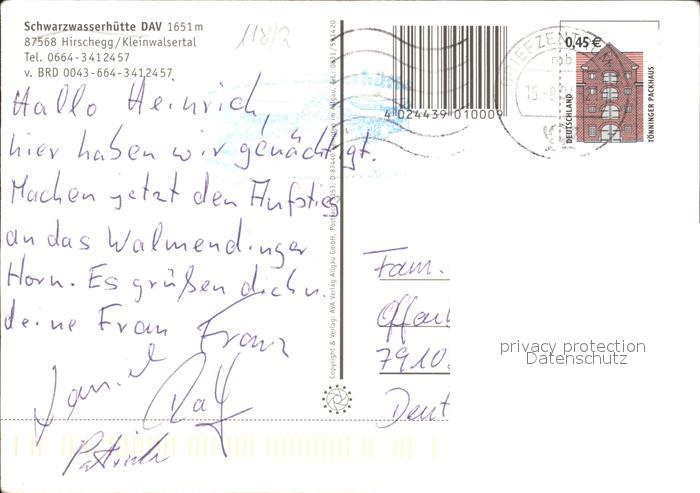 Schwarzwasserhütte DAV 1651m
87568 Hirschegg/Kleinwalsertal
Tel. 0664-3412457
v. BRD 0043-664-3412457
118/2
Hallo Heinrich,
hier haben wir genächtigt.
Machen jetzt den Aufstieg
an das Walmendinger
Horn. Es grüßen dich
deine Frau Franz
Daniel
Ralf
Patrick
Copyright & Verlag: AVA Verlag Allgäu GmbH
4 024439 010009
BRIEFZENTRUM
0,45 €
DEUTSCHLAND
TÖNNINGER PACKHAUS
Fam.
Offen
7910
Deut
privacy protection
Datenschutz